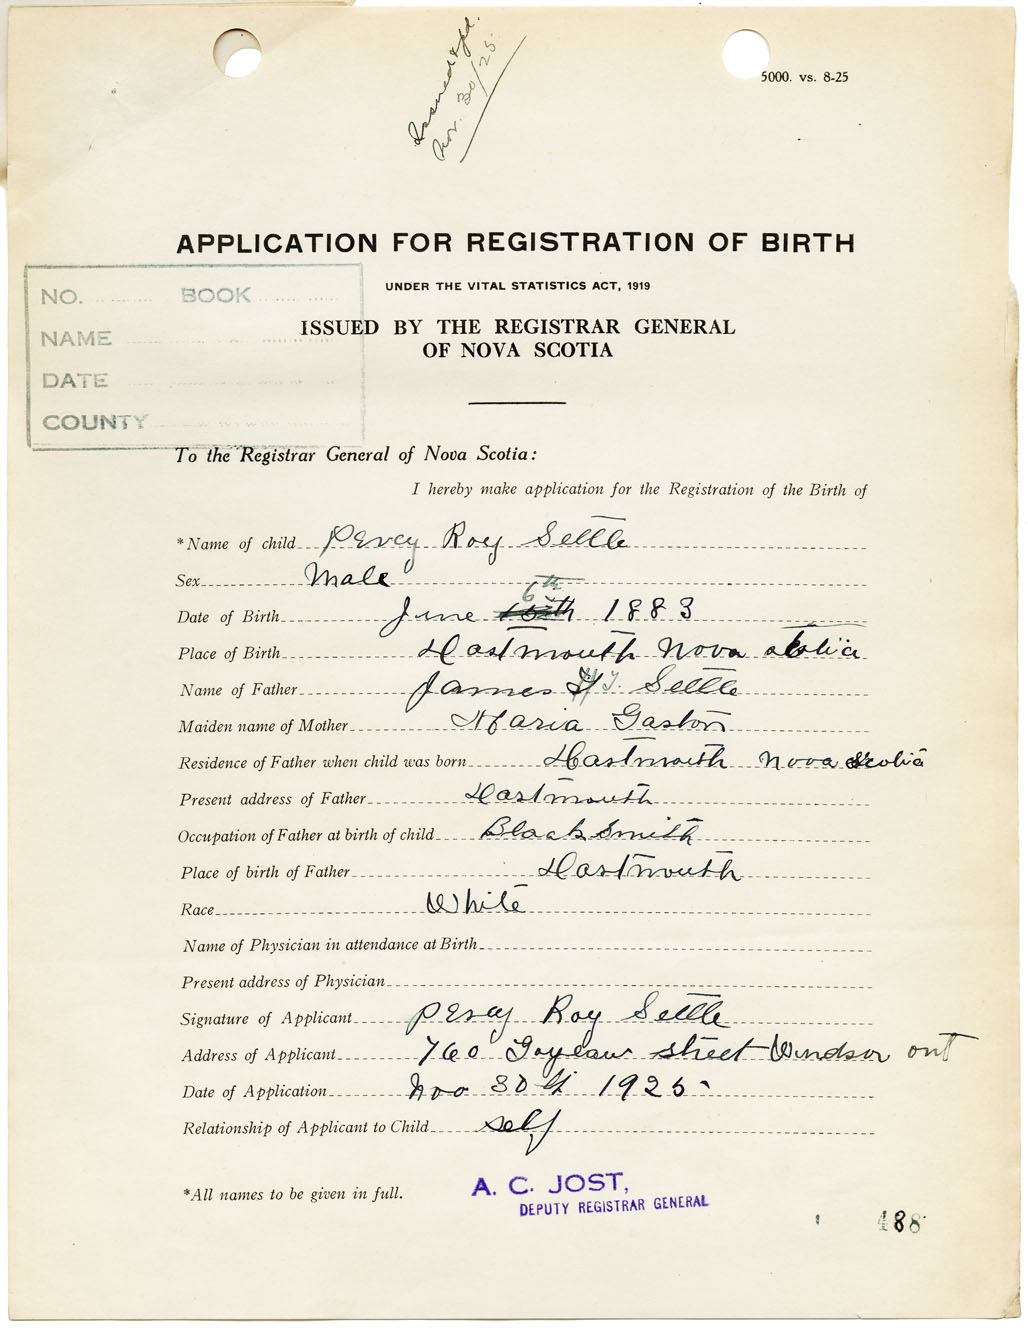 Issued & pd.
Nov. 30/25.
5000. vs. 8-25
APPLICATION FOR REGISTRATION OF BIRTH
UNDER THE VITAL STATISTICS ACT, 1919
ISSUED BY THE REGISTRAR GENERAL
OF NOVA SCOTIA
NO. BOOK
NAME
DATE
COUNTY
To the Registrar General of Nova Scotia:
I hereby make application for the Registration of the Birth of
*Name of child Percy Roy Settle
Sex Male
6th
Date of Birth June 15th 1883
Place of Birth Dartmouth Nova Scotia
Name of Father James T. Settle
Maiden name of Mother Maria Gaston
Residence of Father when child was born Dartmouth Nova Scotia
Present address of Father Dartmouth
Occupation of Father at birth of child Black Smith
Place of birth of Father Dartmouth
Race White
Name of Physician in attendance at Birth
Present address of Physician
Signature of Applicant Percy Roy Settle
Address of Applicant 760 street Windsor ont
Date of Application Nov 30th 1925
Relationship of Applicant to Child self
*All names to be given in full.
A. C. JOST,
DEPUTY REGISTRAR GENERAL
488